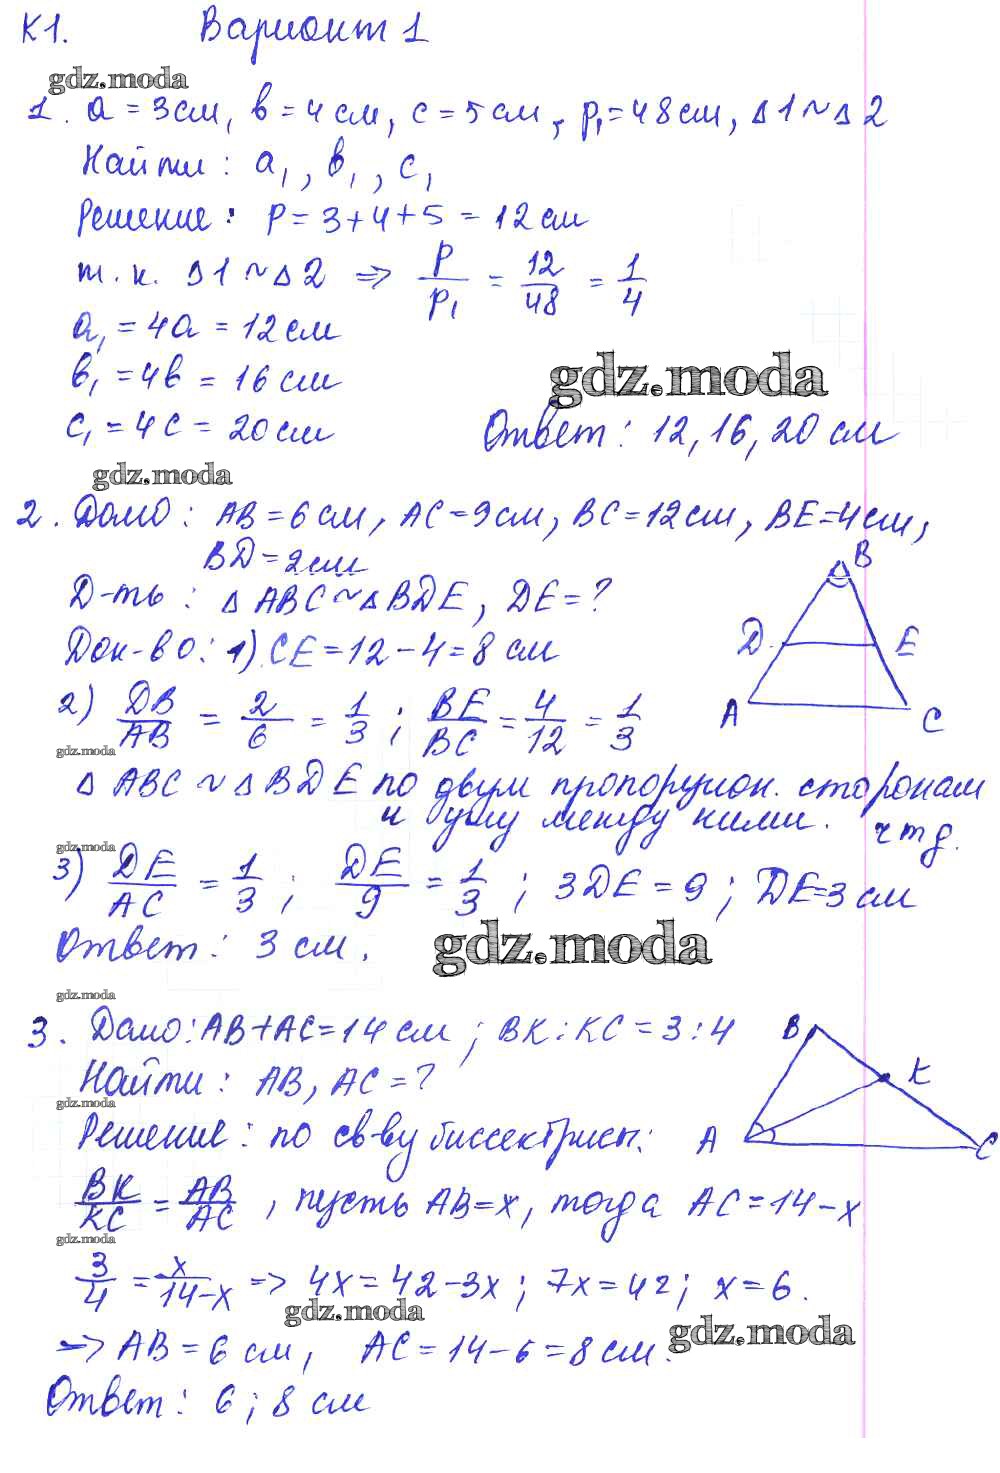 К1. Вариант 1
gdz.moda
1. a = 3 см, в = 4 см, c = 5 см, p₁ = 48 см, Δ1 ~ Δ2
Найти: a₁, в₁, c₁
Решение: P = 3 + 4 + 5 = 12 см
т.к. Δ1 ~ Δ2 => P/p₁ = 12/48 = 1/4
a₁ = 4a = 12 см
в₁ = 4в = 16 см
gdz.moda
c₁ = 4c = 20 см Ответ: 12, 16, 20 см
gdz.moda
2. Дано: AB = 6 см, AC = 9 см, BC = 12 см, BE = 4 см,
BD = 2 см
B
Д-ть: Δ ABC ~ Δ BDE, DE = ?
Док-во: 1) CE = 12 - 4 = 8 см
D E
2) DB/AB = 2/6 = 1/3; BE/BC = 4/12 = 1/3
A C
gdz.moda
Δ ABC ~ Δ BDE по двум пропорцион. сторонам
и углу между ними. чтд.
gdz.moda
3) DE/AC = 1/3; DE/9 = 1/3; 3DE = 9; DE = 3 см
Ответ: 3 см.
gdz.moda
gdz.moda
3. Дано: AB + AC = 14 см; BK : KC = 3 : 4
B
K
Найти: AB, AC = ?
gdz.moda
Решение: по св-ву биссектрисы:
A C
BK/KC = AB/AC, пусть AB = x, тогда AC = 14 - x
gdz.moda
3/4 = x/14-x => 4x = 42 - 3x; 7x = 42; x = 6.
gdz.moda
gdz.moda
=> AB = 6 см, AC = 14 - 6 = 8 см.
Ответ: 6; 8 см